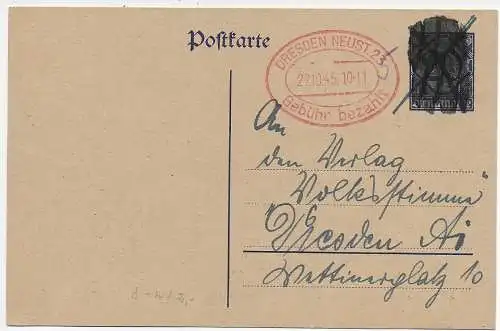 Postkarte
DRESDEN NEUST. 23
22.10.45. 10-11
Gebühr bezahlt
An
den Verlag
"Volksstimme"
Dresden A1
Wettinerplatz 10